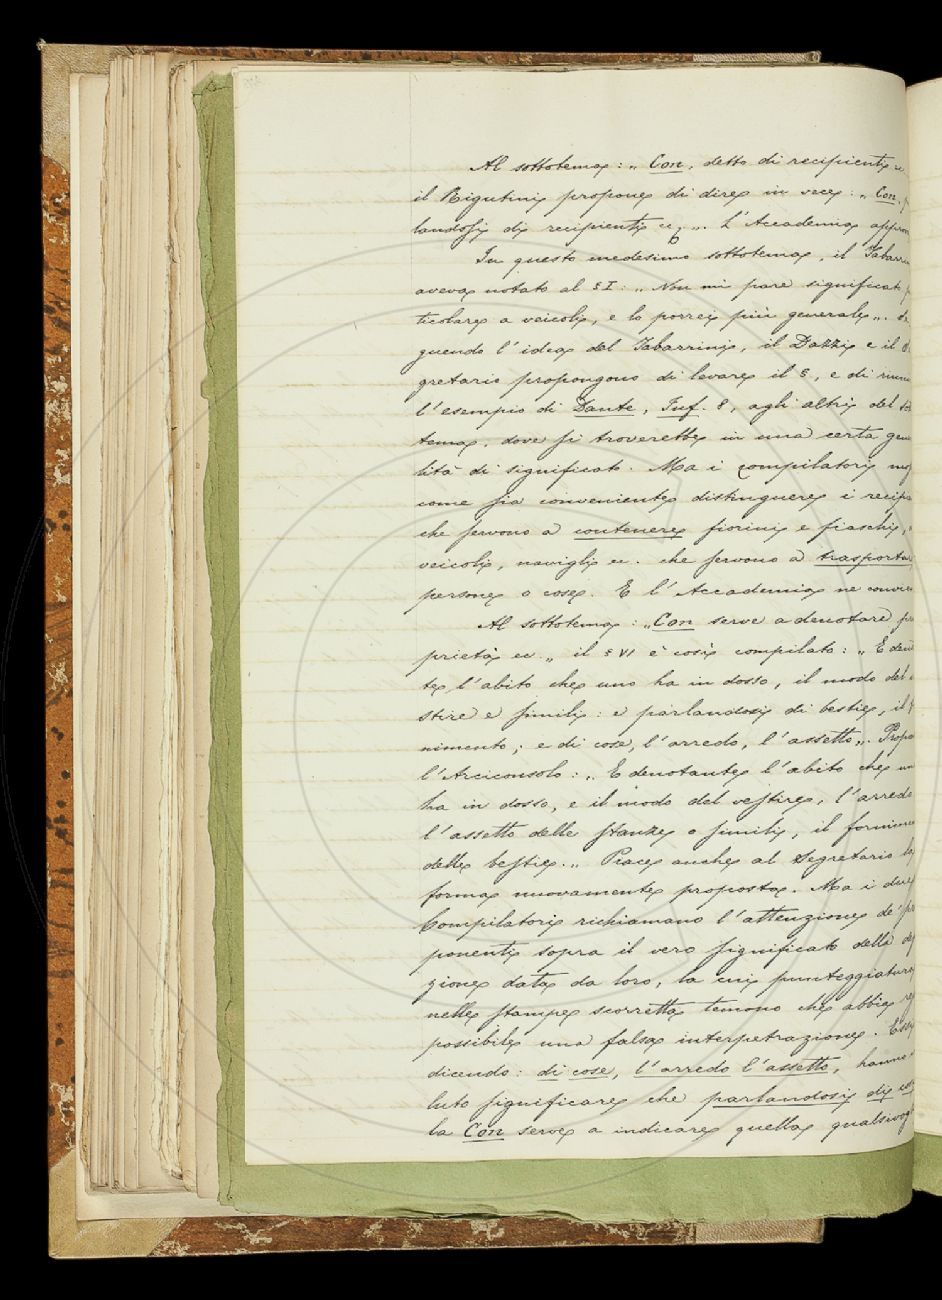 Al sottotema: „ Con, detto di recipienti e
il Rigutini propone di dire in vece: „ Con, p
landosi di recipienti ec. „. L'Accademia approv
In questo medesimo sottotema, il Tabarrin
aveva notato al § I: „ Non mi pare significato p
ticolare a veicoli, e lo porrei più generale „. S
guendo l'idea del Tabarrini, il Dazzi e il
gretario propongono di levare il §, e di riuni
l'esempio di Dante, Inf. 8, agli altri del sot
tema, dove si troverebbe in una certa gene
lità di significato. Ma i compilatori mos
come sia conveniente distinguere i recipi
che servono a contenere fiorini e fiaschi,
veicoli, navigli ec. che servono a trasportar
persone o cose. E l'Accademia ne convie
Al sottotema: „ Con serve a denotare pro
prietà ec. „ il § VI è così compilato: „ E deno
te l'abito che uno ha in dosso, il modo del
stire e simili: e parlandosi di bestie, il f
nimento; e di cose, l'arredo, l'assetto „. Propo
l'Arciconsolo: „ E denotante l'abito che un
ha in dosso, e il modo del vestire, l'arredo
l'assetto delle stanze o simili, il fornime
delle bestie. „ Piace anche al Segretario la
forma nuovamente proposta. Ma i due
Compilatori richiamano l'attenzione de' pro
ponenti sopra il vero significato della def
zione data da loro, la cui punteggiatura
nelle stampe scorretta temono che abbia re
possibile una falsa interpetrazione. Essi
dicendo: di cose, l'arredo l'assetto, hanno
luto significare che parlandosi di cos
la Con serve a indicare quella qualsivogl